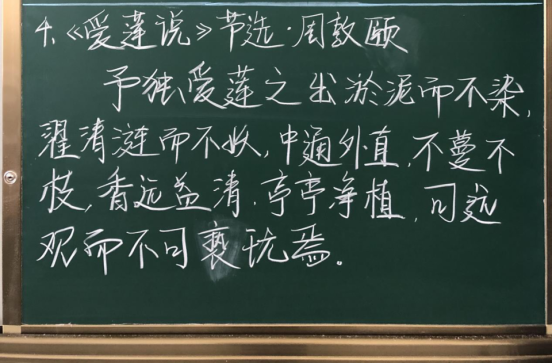 4.《爱莲说》节选·周敦颐
予独爱莲之出淤泥而不染,
濯清涟而不妖,中通外直,不蔓不
枝,香远益清,亭亭净植,可远
观而不可亵玩焉。